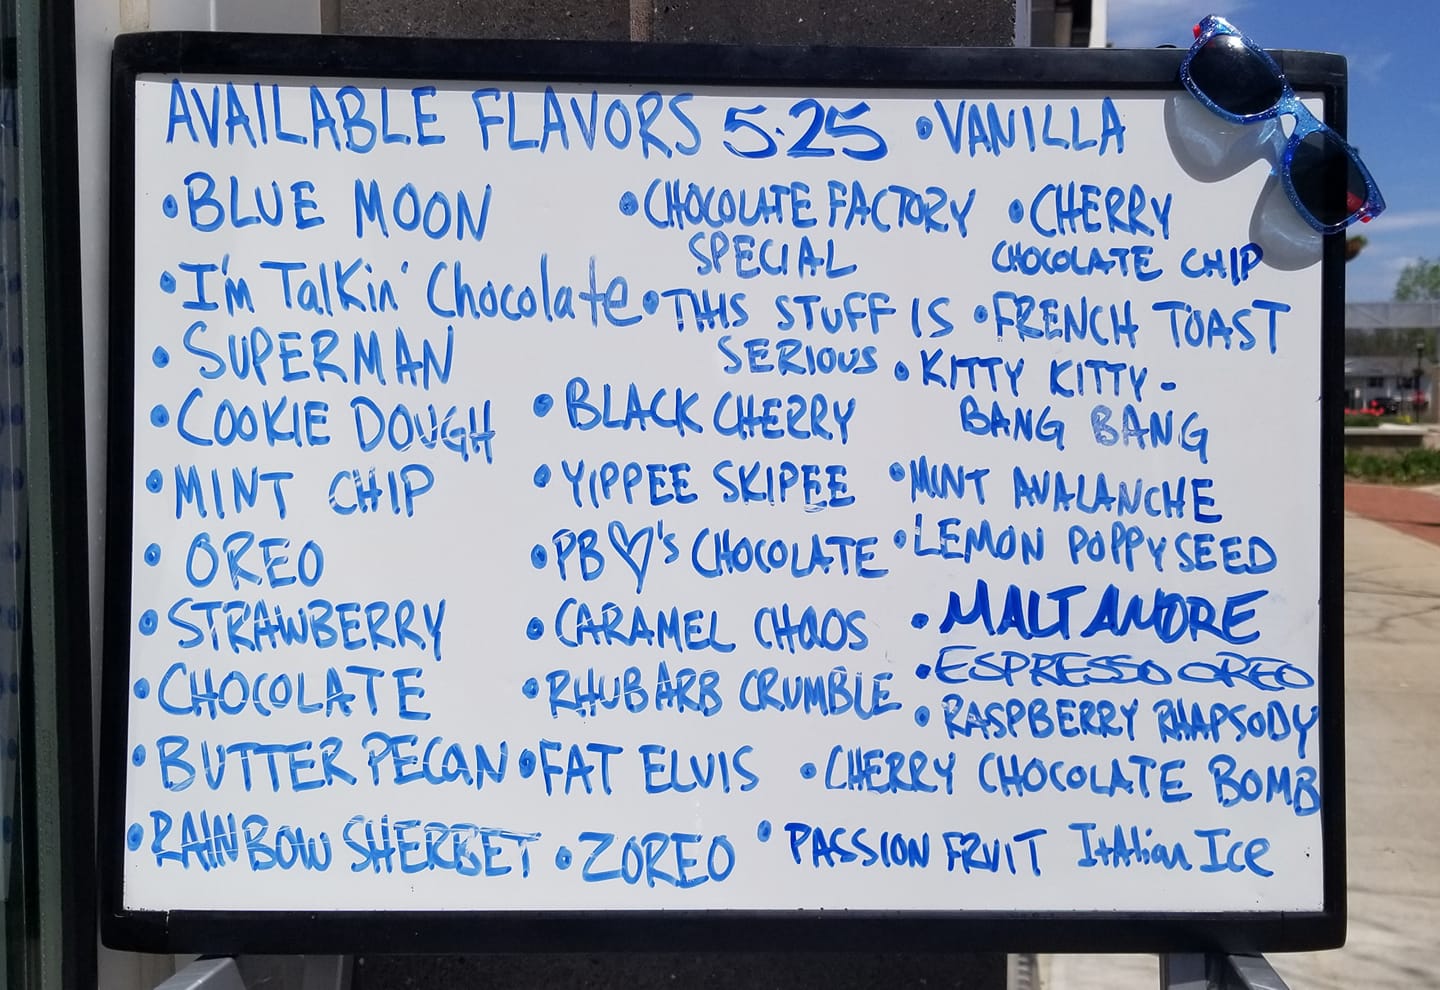 AVAILABLE FLAVORS 5.25
• VANILLA
• BLUE MOON
• I'm Talkin' Chocolate
• SUPERMAN
• COOKIE DOUGH
• MINT CHIP
• OREO
• STRAWBERRY
• CHOCOLATE
• BUTTER PECAN
• RAINBOW SHERBET
• CHOCOLATE FACTORY
SPECIAL
• THIS STUFF IS
SERIOUS
• BLACK CHERRY
• YIPPEE SKIPEE
• PB ♡'s CHOCOLATE
• CARAMEL CHAOS
• RHUBARB CRUMBLE
• FAT ELVIS
• ZOREO
• CHERRY
CHOCOLATE CHIP
• FRENCH TOAST
• KITTY KITTY-
BANG BANG
• MINT AVALANCHE
• LEMON POPPYSEED
• MALT AMORE
• ESPRESSO OREO
• RASPBERRY RHAPSODY
• CHERRY CHOCOLATE BOMB
• PASSION FRUIT Italian Ice